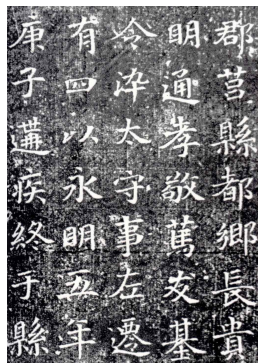 郡莒縣都鄉長貴
明通孝敬篤友基
令淬太守事左遷
有四以永明五年
庚子遘疾終于縣